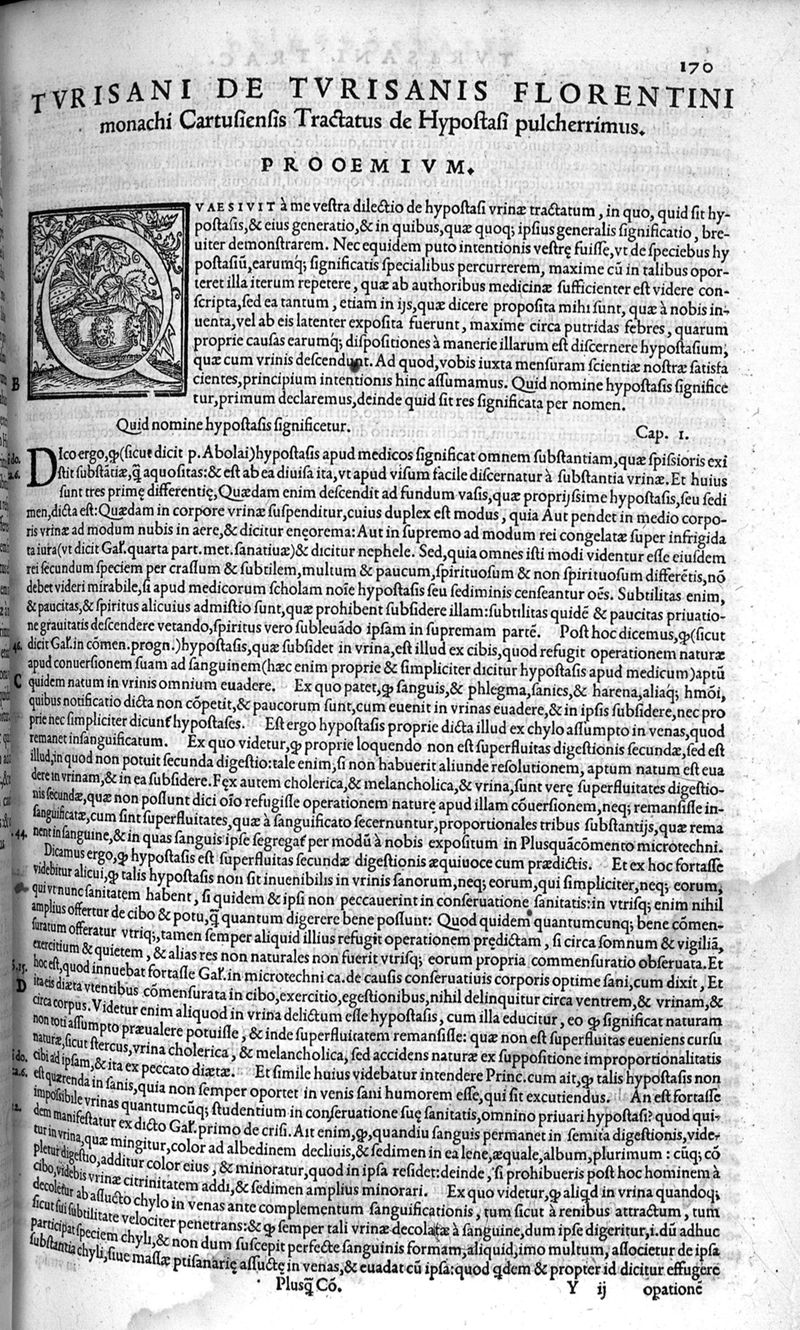 170
TVRISANI DE TVRISANIS FLORENTINI
monachi Cartusiensis Tractatus de Hypostasi pulcherrimus.
PROOEMIVM.
QVAESIVIT à me vestra dilectio de hypostasi vrinæ tractatum, in quo, quid sit hy-
postasis,& eius generatio,& in quibus,quæ quoq; ipsius generalis significatio, bre-
uiter demonstrarem. Nec equidem puto intentionis vestrę fuisse,vt de speciebus hy
postasiū,earumq; significatis specialibus percurrerem, maxime cū in talibus opor-
teret illa iterum repetere, quæ ab authoribus medicinæ sufficienter est videre con-
scripta,sed ea tantum, etiam in ijs,quæ dicere proposita mihi sunt, quæ à nobis in-
uenta,vel ab eis latenter exposita fuerunt, maxime circa putridas febres, quarum
proprie causas earumq; dispositiones à manerie illarum est discernere hypostasium,
quæ cum vrinis descendunt. Ad quod,vobis iuxta mensuram scientiæ nostræ satisfa
B
cientes,principium intentionis hinc assumamus. Quid nomine hypostasis significe
tur,primum declaremus,deinde quid sit res significata per nomen.
Quid nomine hypostasis significetur.
Cap. 1.
DIco ergo,ꝙ(sicut dicit p. Abolai)hypostasis apud medicos significat omnem substantiam,quæ spissioris exi
stit substātiæ,q̄ aquositas:& est ab ea diuisa ita,vt apud visum facile discernatur à substantia vrinæ. Et huius
sunt tres primę differentię,Quædam enim descendit ad fundum vasis,quæ proprijssime hypostasis,seu sedi
men,dicta est:Quædam in corpore vrinæ suspenditur,cuius duplex est modus, quia Aut pendet in medio corpo-
ris vrinæ ad modum nubis in aere,& dicitur eneorema:Aut in supremo ad modum rei congelatæ super infrigida
ta iura(vt dicit Gal. quarta part.met.sanatiuæ)& dicitur nephele. Sed,quia omnes isti modi videntur esse eiusdem
rei secundum speciem per crassum & subtilem,multum & paucum,spirituosum & non spirituosum differētis,nō
debet videri mirabile,si apud medicorum scholam noīe hypostasis seu sediminis censeantur oēs. Subtilitas enim,
& paucitas,& spiritus alicuius admistio sunt,quæ prohibent subsidere illam:subtilitas quidē & paucitas priuatio-
ne grauitatis descendere vetando,spiritus vero subleuādo ipsam in supremam partē. Post hoc dicemus,ꝙ(sicut
46.
dicit Gal. in cōmen.progn.)hypostasis,quæ subsidet in vrina,est illud ex cibis,quod refugit operationem naturæ
apud conuersionem suam ad sanguinem(hæc enim proprie & simpliciter dicitur hypostasis apud medicum)aptū
C
quidem natum in vrinis omnium euadere. Ex quo patet,ꝙ sanguis,& phlegma,sanies,& harena,aliaq; hmōi,
quibus notificatio dicta non cōpetit,& paucorum sunt,cum euenit in vrinas euadere,& in ipsis subsidere,nec pro
prie nec simpliciter dicunt hypostases. Est ergo hypostasis proprie dicta illud ex chylo assumpto in venas,quod
remanet insanguificatum. Ex quo videtur,ꝙ proprie loquendo non est superfluitas digestionis secundæ,sed est
illud,in quod non potuit secunda digestio:tale enim,si non habuerit aliunde resolutionem, aptum natum est eua
dere in vrinam,& in ea subsidere. Fęx autem cholerica,& melancholica,& vrina,sunt verę superfluitates digestio-
nis secundæ,quæ non possunt dici oīo refugisse operationem naturę apud illam cōuersionem,neq; remansisse in-
sanguificatæ,cum sint superfluitates,quæ à sanguificato secernuntur,proportionales tribus substantijs,quæ rema
44.
nent in sanguine,& in quas sanguis ipse segregat per modū à nobis expositum in Plusquācōmento microtechni.
Dicamus ergo,ꝙ hypostasis est superfluitas secundæ digestionis æquiuoce cum prædictis. Et ex hoc fortasse
videbitur alicui,ꝙ talis hypostasis non sit inuenibilis in vrinis sanorum,neq; eorum,qui simpliciter,neq; eorum,
qui vt nunc sanitatem habent, si quidem & ipsi non peccauerint in conseruatione sanitatis:in vtrisq; enim nihil
amplius offertur de cibo & potu,q̄ quantum digerere bene possunt: Quod quidem quantumcunq; bene cōmen-
suratum offeratur vtriq;,tamen semper aliquid illius refugit operationem prędictam, si circa somnum & vigiliā,
exercitium & quietem, & alias res non naturales non fuerit vtrisq; eorum propria commensuratio obseruata. Et
hoc est,quod innuebat fortasse Gal. in microtechni ca. de causis conseruatiuis corporis optime sani,cum dixit, Et
D
ita eis diæta vtentibus cōmensurata in cibo,exercitio,egestionibus,nihil delinquitur circa ventrem,& vrinam,&
circa corpus. Videtur enim aliquod in vrina delictum esse hypostasis, cum illa educitur, eo ꝙ significat naturam
non toti assumpto præualere potuisse, & inde superfluitatem remansisse: quæ non est superfluitas eueniens cursu
naturæ,sicut stercus,vrina cholerica, & melancholica, sed accidens naturæ ex suppositione improportionalitatis
cibi ad ipsam,& ita ex peccato diætæ. Et simile huius videbatur intendere Princ.cum ait,ꝙ talis hypostasis non
est quærenda in sanis,quia non semper oportet in venis sani humorem esse,qui sit excutiendus. An est fortasse
impossibile vrinas quantumcūq; studentium in conseruatione suę sanitatis,omnino priuari hypostasi? quod qui-
dem manifestatur ex dicto Gal. primo de crisi. Ait enim,ꝙ,quandiu sanguis permanet in semita digestionis,vide-
tur in vrina,quæ mingitur,color ad albedinem decliuis,& sedimen in ea lene,æquale,album,plurimum : cūq; cō
pletur digestio,additur color eius, & minoratur,quod in ipsa residet:deinde, si prohibueris post hoc hominem à
cibo,videbis vrinæ citrinitatem addi,& sedimen amplius minorari. Ex quo videtur,ꝙ aliqd in vrina quandoq;
decoletur ab assucto chylo in venas ante complementum sanguificationis, tum sicut à renibus attractum, tum
sicut sui subtilitate velociter penetrans:& ꝙ semper tali vrinæ decolatæ à sanguine,dum ipse digeritur,i.dū adhuc
participat speciem chyli,& non dum suscepit perfecte sanguinis formam,aliquid,imo multum, associetur de ipsa
substantia chyli,siue massæ ptisanarię assuctę in venas,& euadat cū ipsa:quod qdem & propter id dicitur effugere
Plusq̄ Cō.
Y ij
opationē